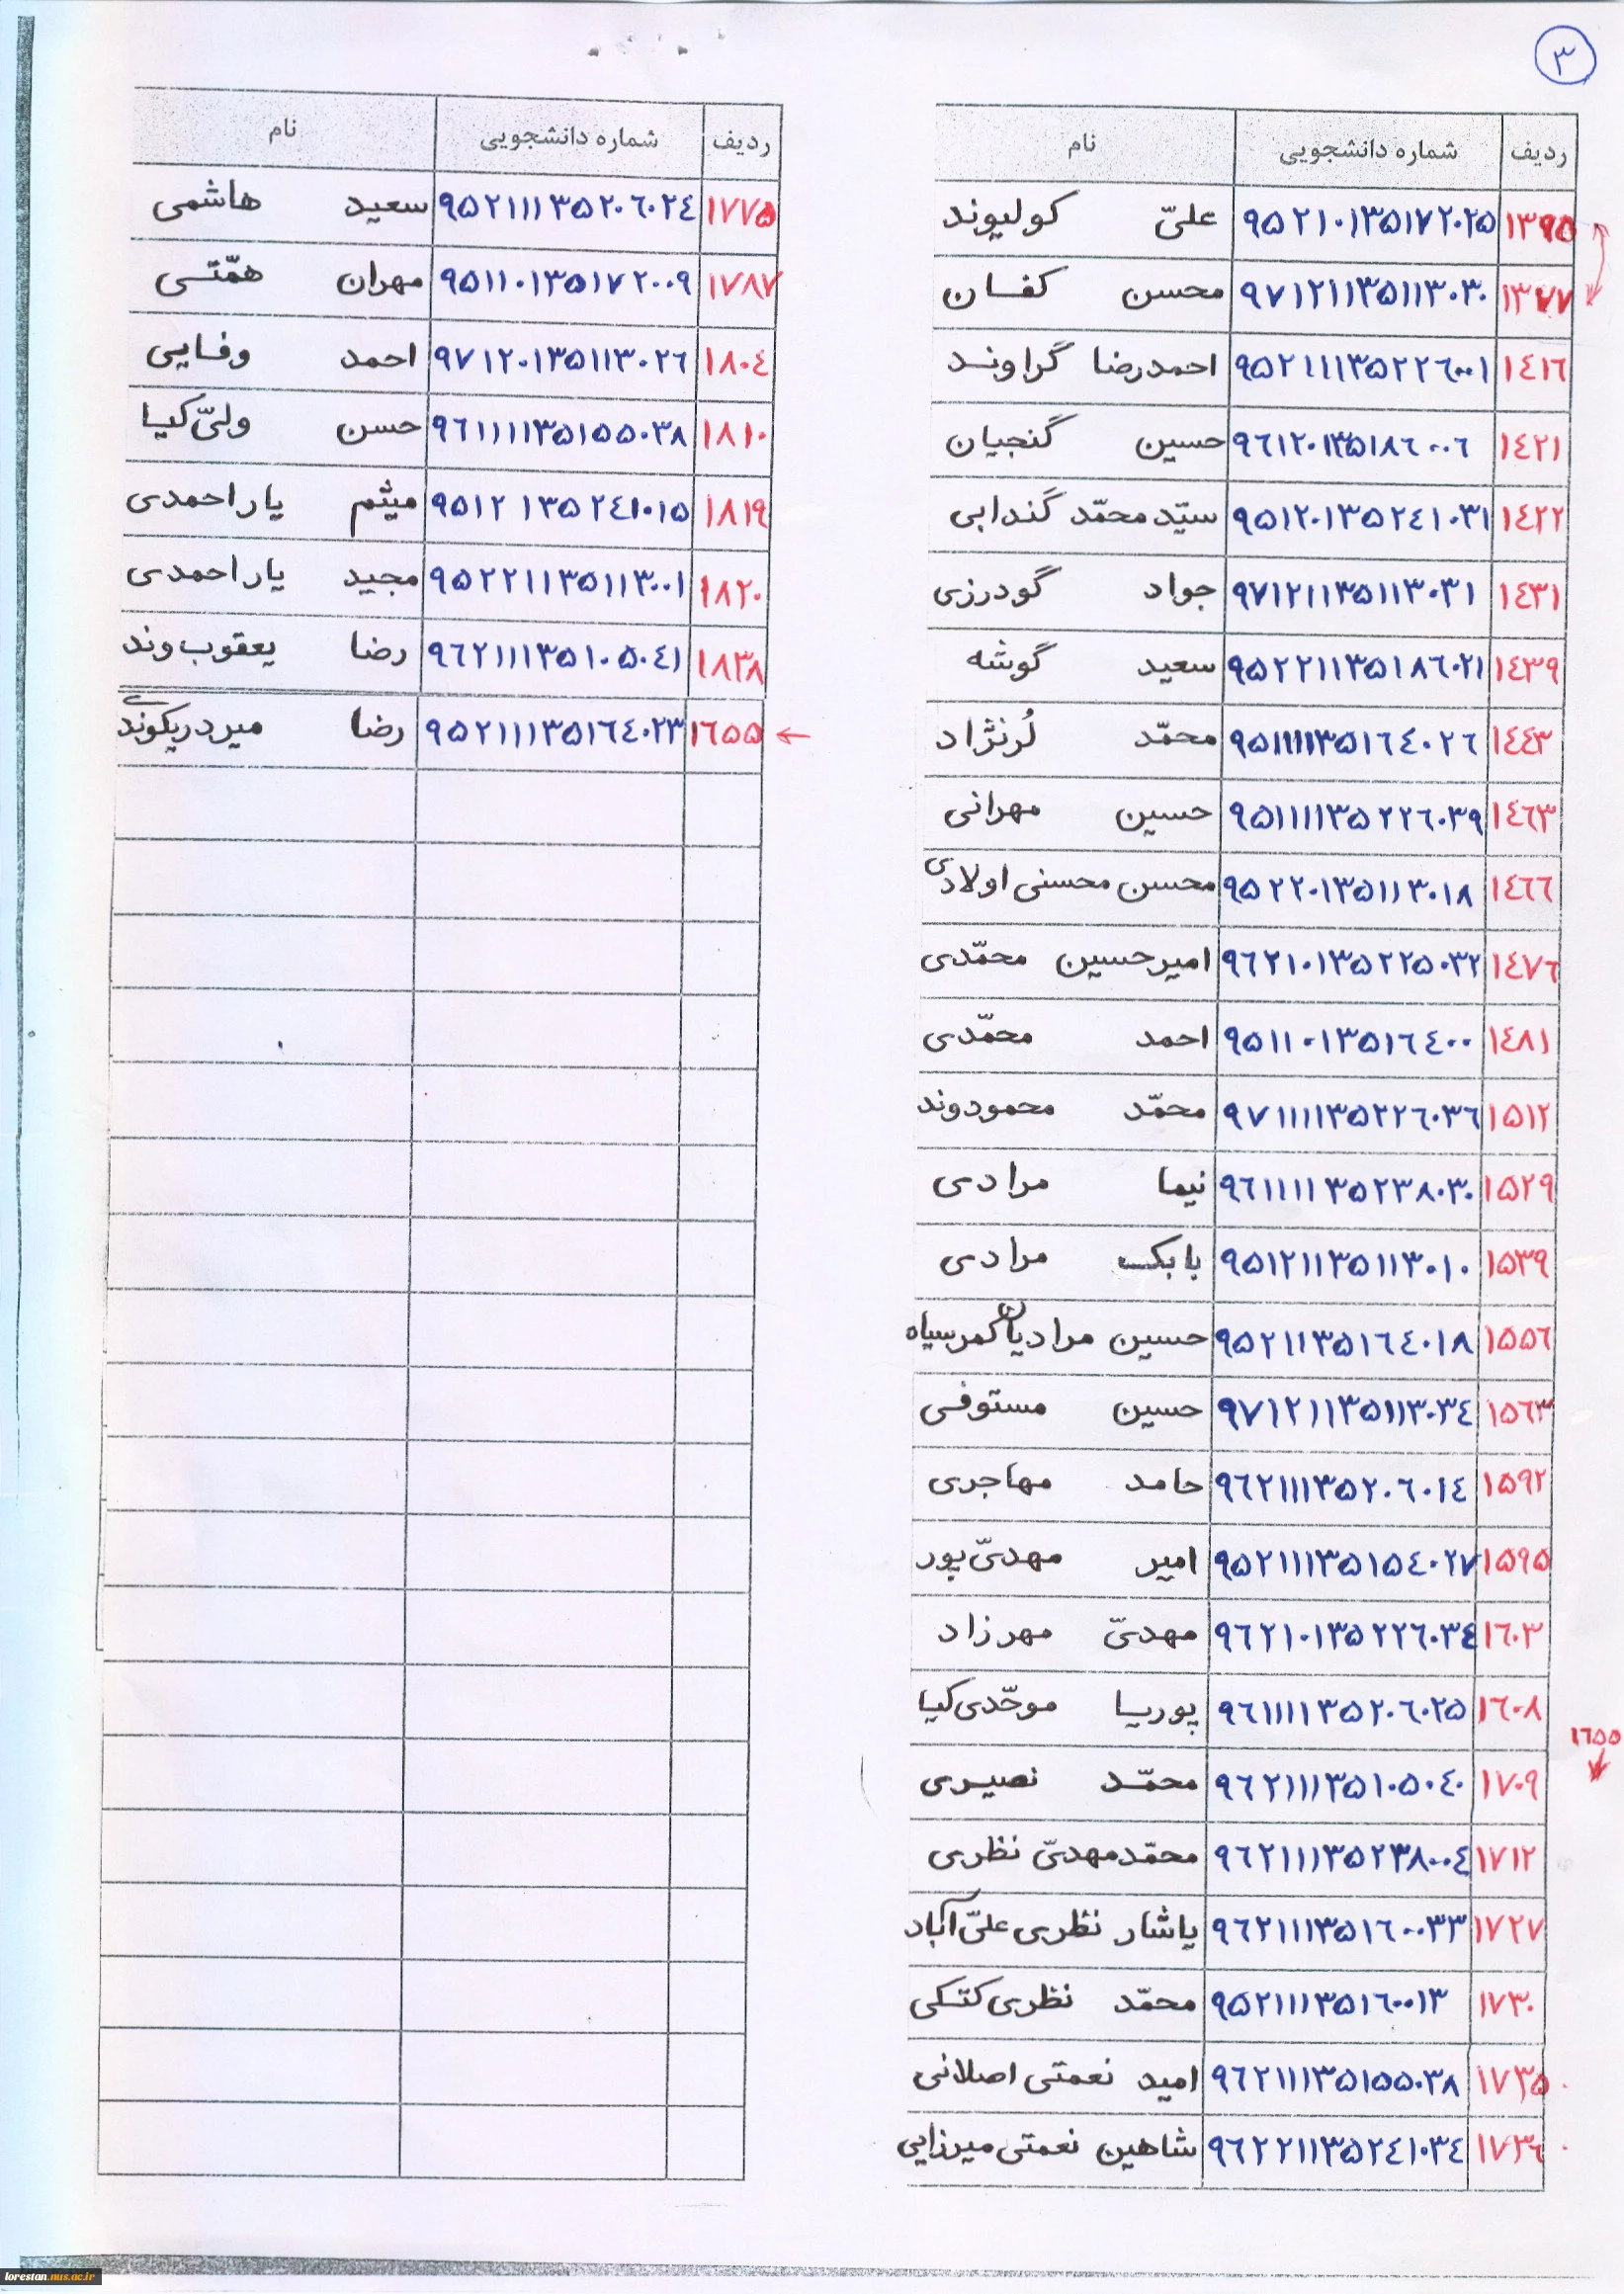 ۳
ردیف شماره دانشجویی نام
۱۳۹۵ ۹۵۲۱۰۱۳۵۱۷۲۰۲۵ علیّ کولیوند
۱۳۷۷ ۹۷۱۲۱۱۳۵۱۱۳۰۳۰ محسن کفسان
۱٤۱٦ ۹۵۲۱۱۱۳۵۲۲٦۰۰۱ احمدرضا گراوند
۱٤۲۱ ۹٦۱۲۰۱۳۵۱۸٦۰۰٦ حسین گنجیان
۱٤۲۲ ۹۵۱۲۰۱۳۵۲٤۱۰۳۱ سیّد محمّد گندابی
۱٤۳۱ ۹۷۱۲۱۱۳۵۱۱۳۰۳۱ جواد گودرزی
۱٤۳۹ ۹۵۲۲۱۱۳۵۱۸٦۰۲۱ سعید گوشه
۱٤٤۳ ۹۵۱۱۱۱۳۵۱٦٤۰۲٦ محمّد لُرنژاد
۱٤٦۳ ۹۵۱۱۱۱۳۵۲۲٦۰۳۹ حسین مهرانی
۱٤٦٦ ۹۵۲۲۰۱۳۵۱۱۳۰۱۸ محسن محسنی اولادی
۱٤۷٦ ۹٦۲۱۰۱۳۵۲۲۵۰۳۲ امیرحسین محمّدی
۱٤۸۱ ۹۵۱۱۰۱۳۵۱٦٤۰۰ احمد محمّدی
۱۵۱۲ ۹۷۱۱۱۱۳۵۲۲٦۰۳٦ محمّد محمودوند
۱۵۲۹ ۹٦۱۱۱۱۳۵۲۳۸۰۳۰ نیما مرادی
۱۵۳۹ ۹۵۱۲۱۱۳۵۱۱۳۰۱۰ بابک مرادی
۱۵۵٦ ۹۵۲۱۱۳۵۱٦٤۰۱۸ حسین مرادیان کمرسیاه
۱۵٦۳ ۹۷۱۲۱۱۳۵۱۱۳۰۳٤ حسین مستوفی
۱۵۹۲ ۹٦۲۱۱۱۳۵۲۰٦۰۱٤ حامد مهاجری
۱۵۹۵ ۹۵۲۱۱۱۳۵۱۵٤۰۲۷ امیر مهدیّ پور
۱٦۰۳ ۹٦۲۱۰۱۳۵۲۲٦۰۳٤ مهدیّ مهرزاد
۱٦۰۸ ۹٦۱۱۱۱۳۵۲۰٦۰۲۵ پوریسا موحّدی کیا
۱٦۵۵
۱۷۰۹ ۹٦۲۱۱۱۳۵۱۰۵۰٤۰ محمّد نصیری
۱۷۱۲ ۹٦۲۱۱۱۳۵۲۳۸۰۰٤ محمّدمهدیّ نظری
۱۷۲۷ ۹٦۲۱۱۱۳۵۱٦۰۰۳۳ یاشار نظری علیّ آباد
۱۷۳۰ ۹۵۲۱۱۱۳۵۱٦۰۰۱۳ محمّد نظری کتکی
۱۷۳۵ ۹٦۲۱۱۱۳۵۱۵۵۰۳۸ امید نعمتی اصلانی
۱۷۳٦ ۹٦۲۲۱۱۳۵۲٤۱۰۳٤ شاهین نعمتی میرزایی
ردیف شماره دانشجویی نام
۱۷۷۵ ۹۵۲۱۱۱۳۵۲۰٦۰۲٤ سعید هاشمی
۱۷۸۷ ۹۵۱۱۰۱۳۵۱۷۲۰۰۹ مهران همّتی
۱۸۰٤ ۹۷۱۲۰۱۳۵۱۱۳۰۲٦ احمد وفایی
۱۸۱۰ ۹٦۱۱۱۱۳۵۱۵۵۰۳۸ حسن ولیّ کیا
۱۸۱۹ ۹۵۱۲۱۳۵۲٤۱۰۱۵ میثم یاراحمدی
۱۸۲۰ ۹۵۲۲۱۱۳۵۱۱۳۰۰۱ مجید یاراحمدی
۱۸۳۸ ۹٦۲۱۱۱۳۵۱۰۵۰٤۱ رضا یعقوب وند
۱٦۵۵ ۹۵۲۱۱۱۳۵۱٦٤۰۲۳ رضا میردریکوندی
lorestan.nus.ac.ir